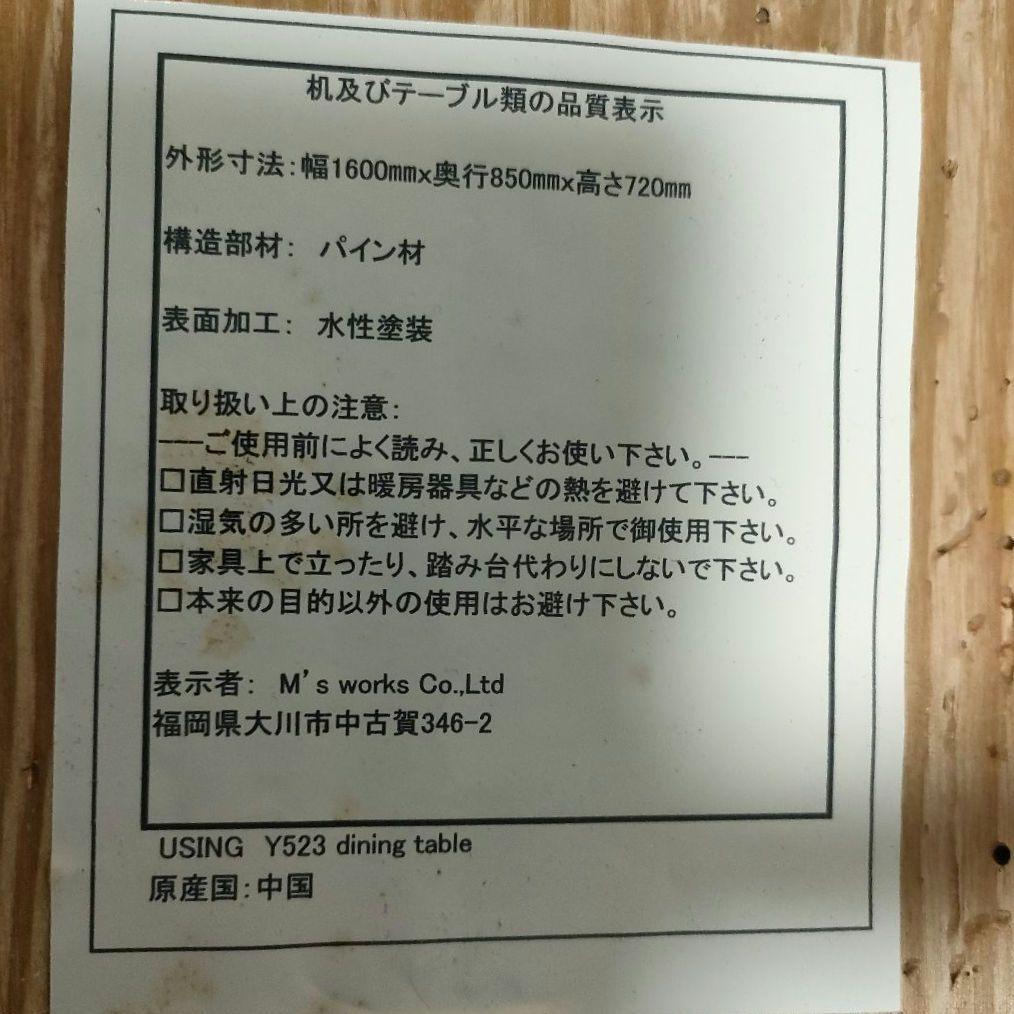 机及びテーブル類の品質表示
外形寸法：幅1600mm×奥行850mm×高さ720mm
構造部材： パイン材
表面加工： 水性塗装
取り扱い上の注意：
---ご使用前によく読み、正しくお使い下さい。---
□直射日光又は暖房器具などの熱を避けて下さい。
□湿気の多い所を避け、水平な場所で御使用下さい。
□家具上で立ったり、踏み台代わりにしないで下さい。
□本来の目的以外の使用はお避け下さい。
表示者： M's works Co.,Ltd
福岡県大川市中古賀346-2
USING Y523 dining table
原産国：中国